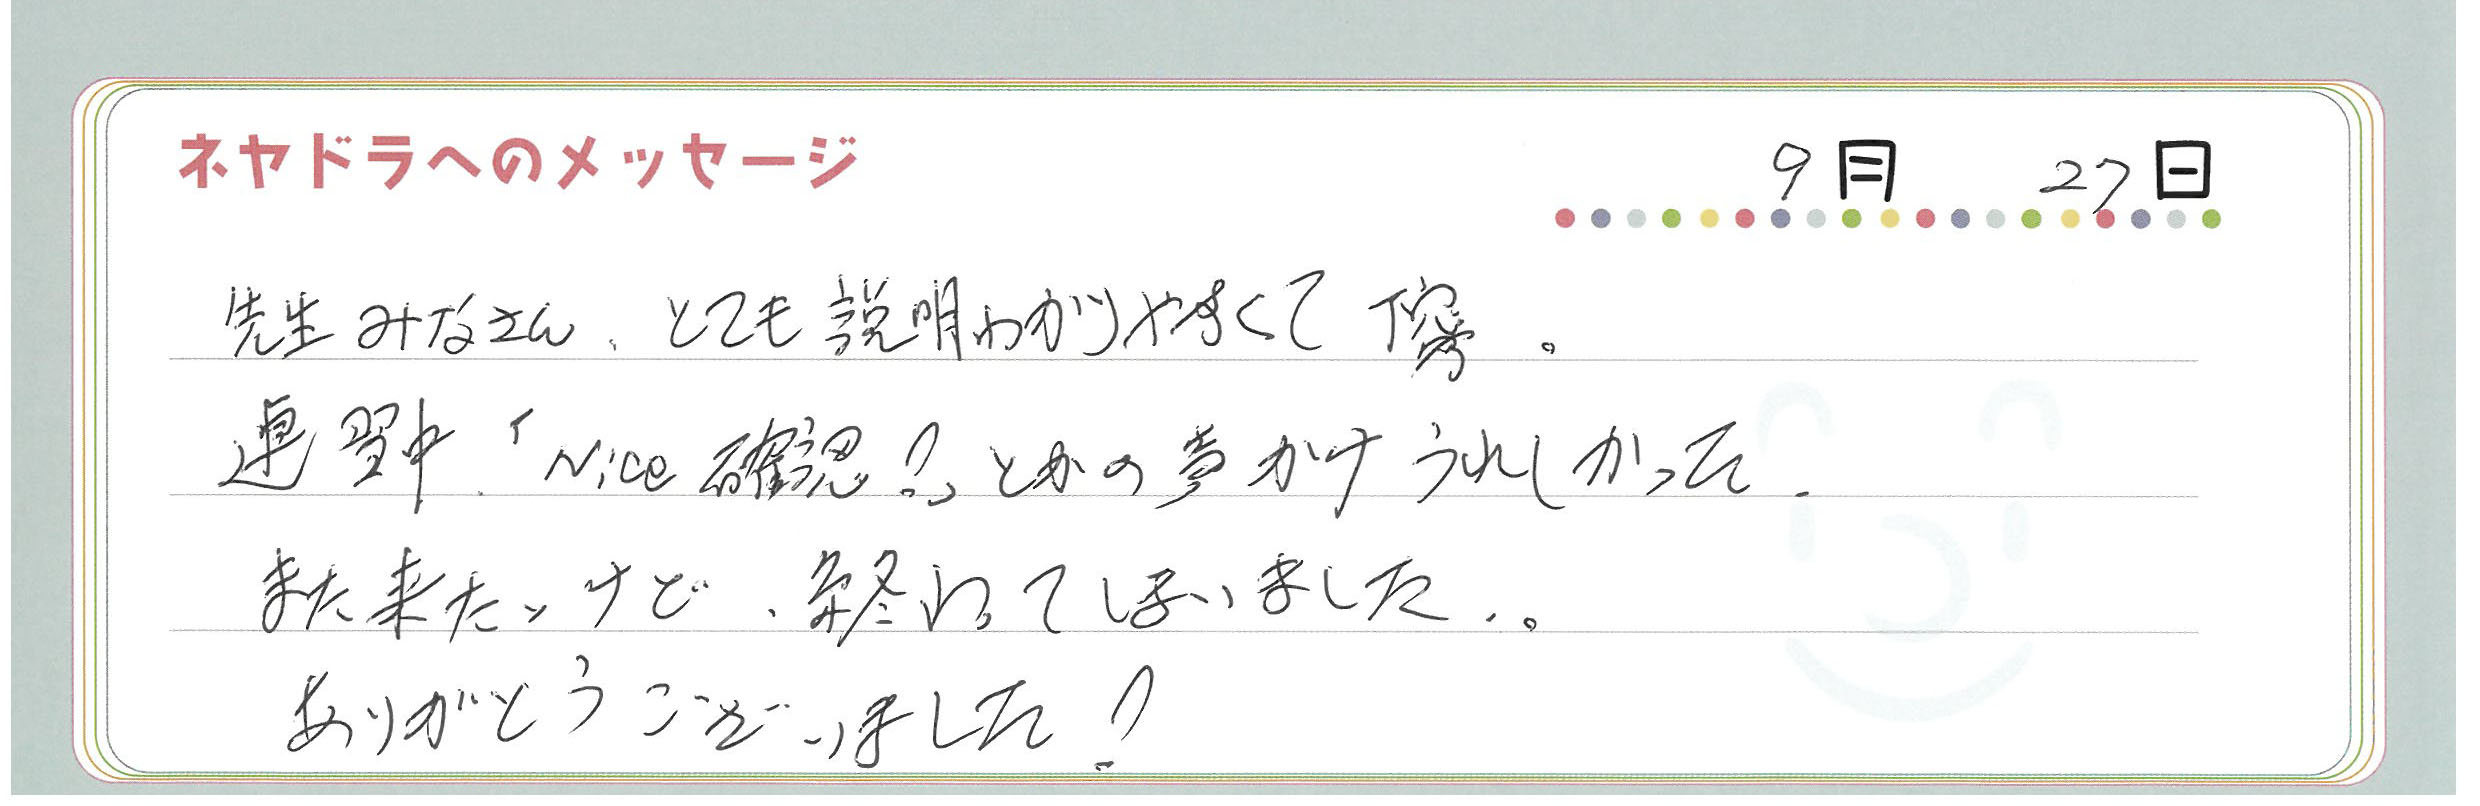 ネヤドラへのメッセージ
9月 27日
先生みなさん、とても説明わかりやすくて丁寧。
運習中、「Nice確認!」とかの声かけうれしかった.
また来たいけど、終わってしまいました..。
ありがとうございました!